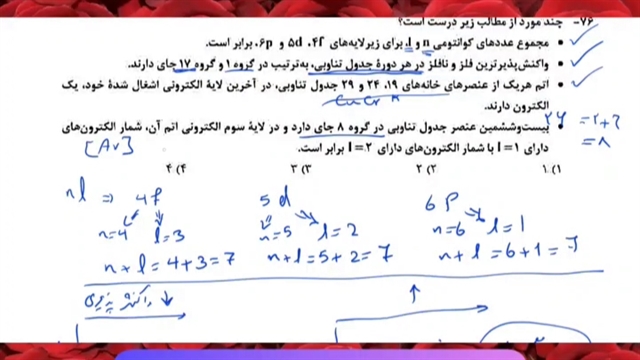 ۷۶- چند مورد از مطالب زیر درست است؟
• مجموع عددهای کوانتومی n و l، برای زیرلایه‌های ۴f، ۵d و ۶p، برابر است.
• واکنش‌پذیرترین فلز و نافلز در هر دورهٔ جدول تناوبی، به‌ترتیب در گروه ۱ و گروه ۱۷ جای دارند.
• اتم هریک از عنصرهای خانه‌های ۱۹، ۲۴ و ۲۹ جدول تناوبی، در آخرین لایهٔ الکترونی اشغال شدهٔ خود، یک
الکترون دارند.
Cu Cr K
• بیست‌وششمین عنصر جدول تناوبی در گروه ۸ جای دارد و در لایهٔ سوم الکترونی اتم آن، شمار الکترون‌های
دارای l = 1 با شمار الکترون‌های دارای l = ۲ برابر است.
= ۸
[Ar]
۱) ۱ ۲) ۲ ۳) ۳ ۴) ۴
nl ⇒ 4f 5d 6p
n=4 l=3 n=5 l=2 n=6 l=1
n+l=4+3=7 n+l=5+2=7 n+l=6+1=7
واکنش پذیری ↓ ↑